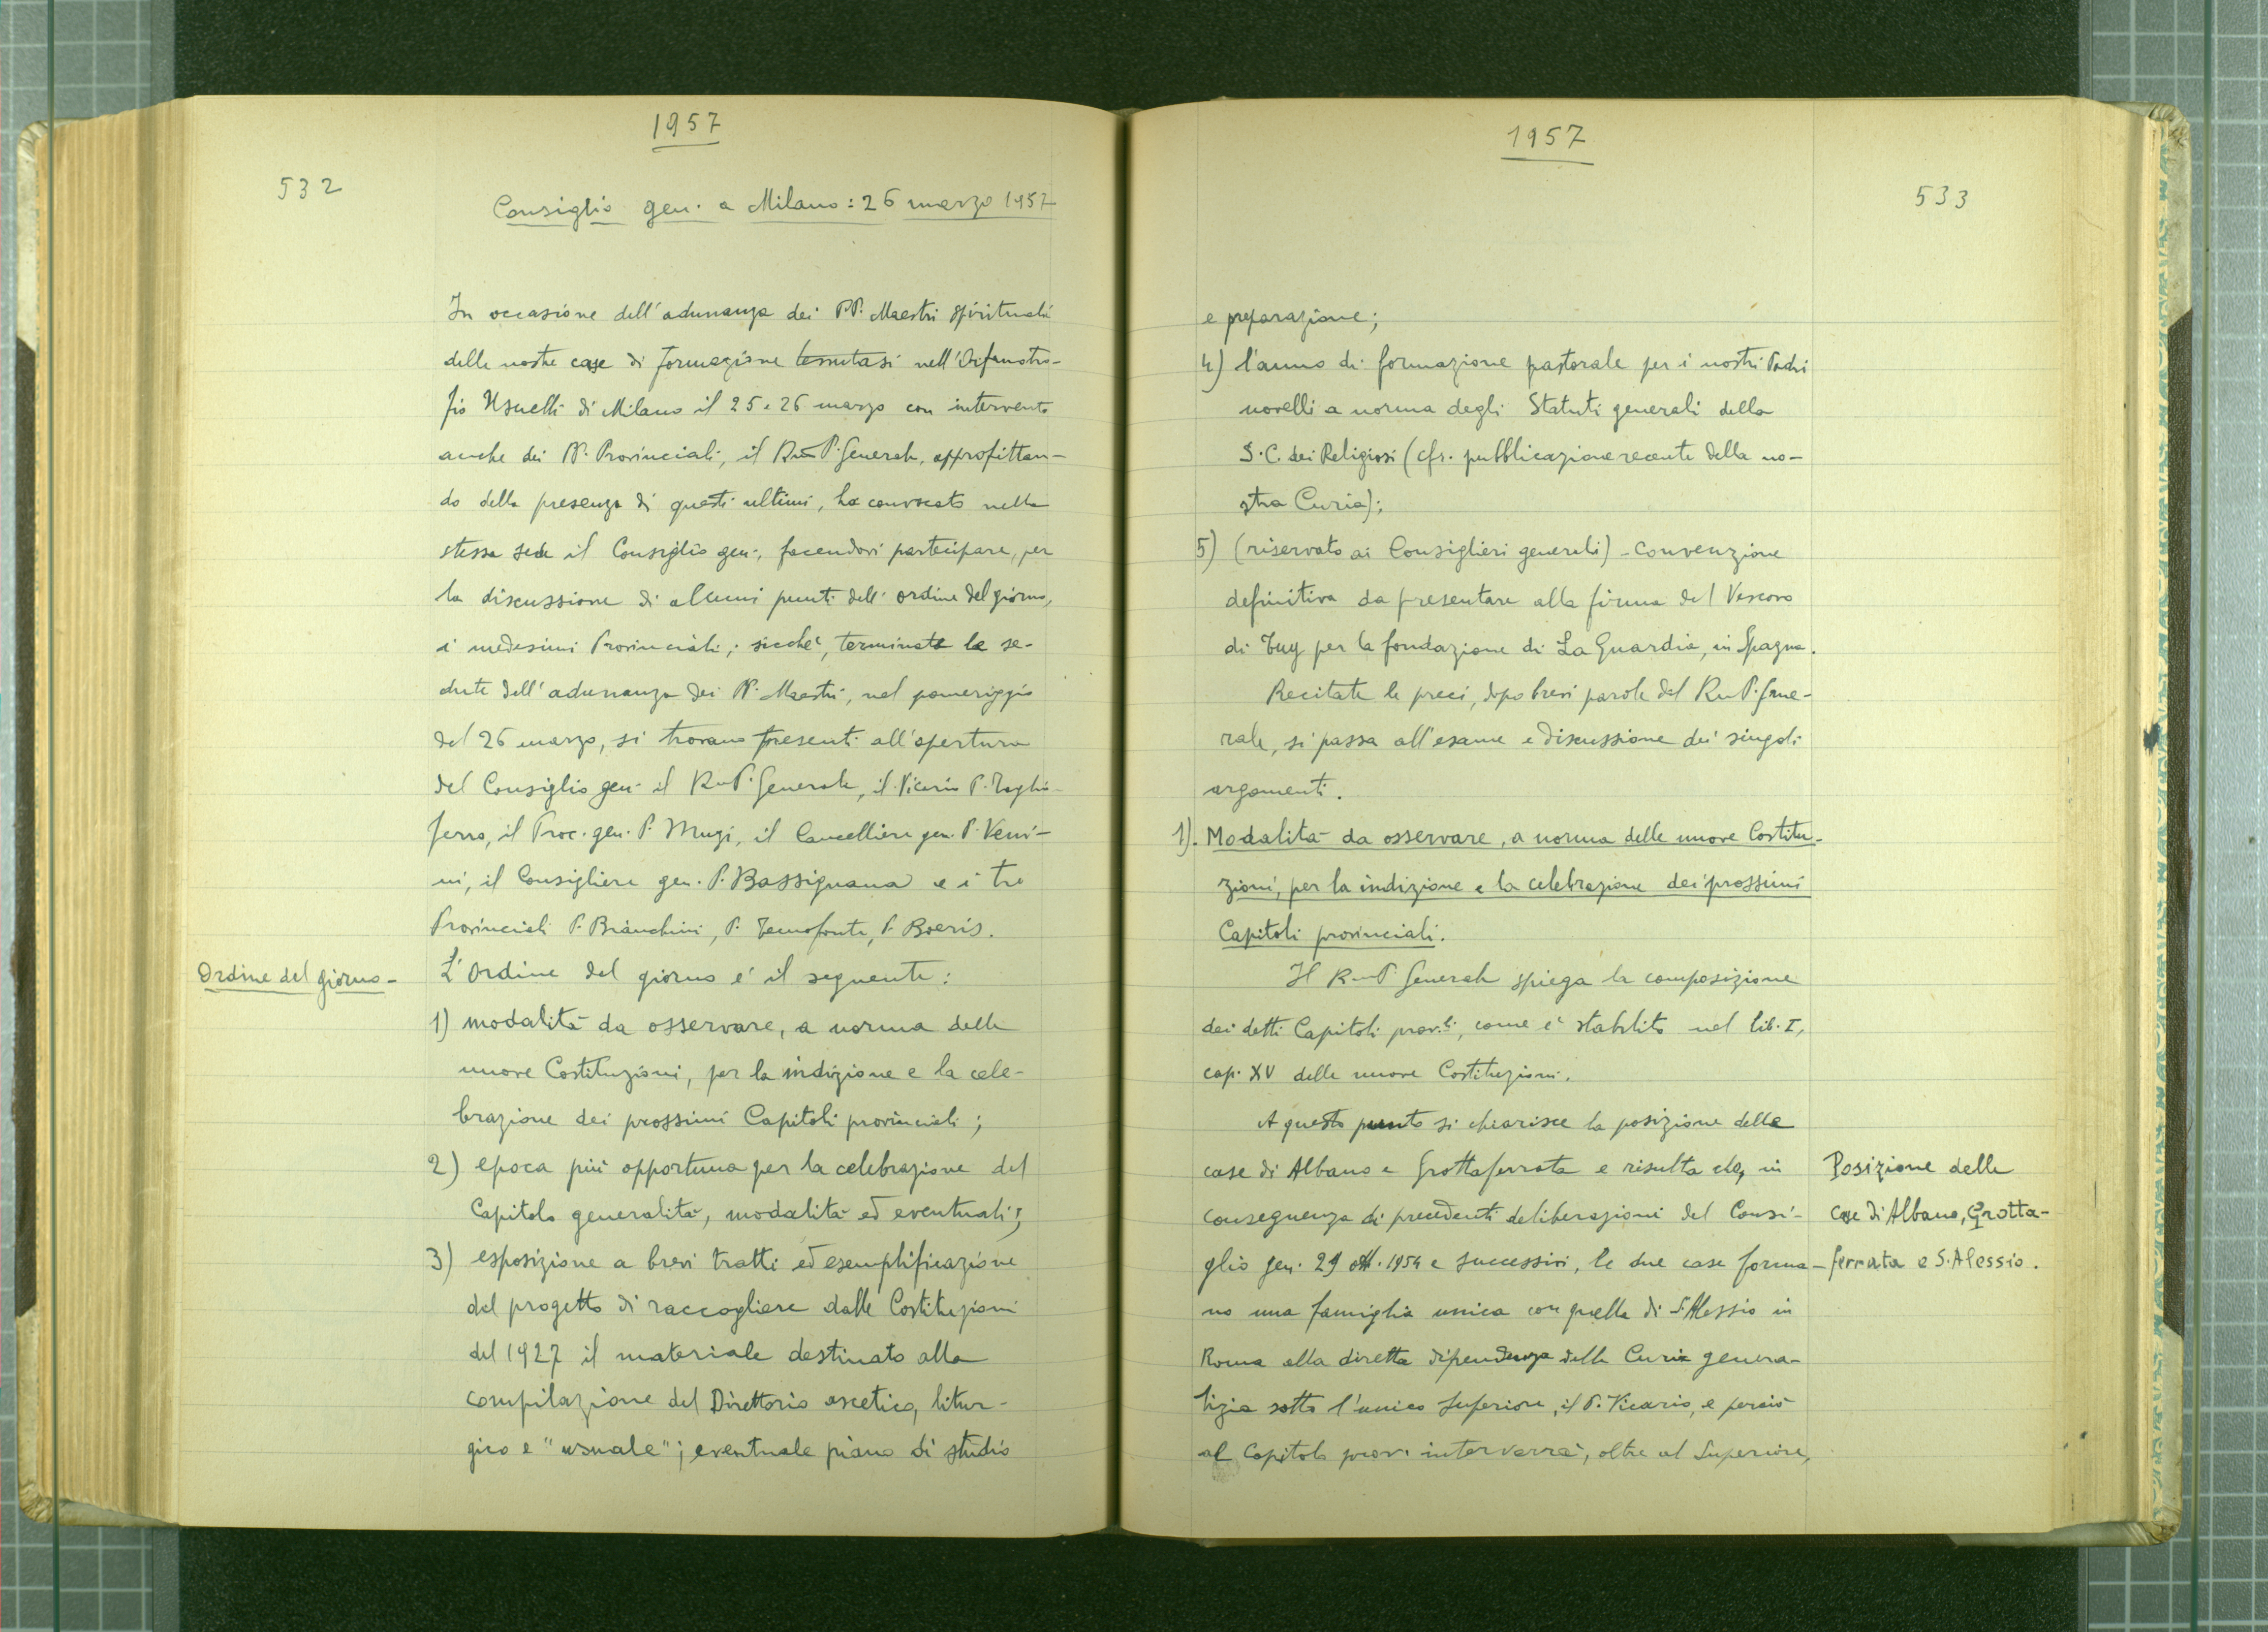 1957
532
Consiglio gen. a Milano: 26 marzo 1957
In occasione dell'adunanza dei PP. Maestri spirituali
delle nostre case di formazione tenutasi nell'Orfanotro-
fio Usuelli di Milano il 25 e 26 marzo con intervento
anche dei PP. Provinciali, il Rmo P. Generale, approfittan-
do della presenza di questi ultimi, ha convocato nella
stessa sede il Consiglio gen., facendovi partecipare, per
la discussione di alcuni punti dell'ordine del giorno,
i medesimi Provinciali; sicché, terminate le se-
dute dell'adunanza dei PP. Maestri, nel pomeriggio
del 26 marzo, si trovano presenti all'apertura
del Consiglio gen. il Rmo P. Generale, il Vicario P. Taglia-
ferro, il Proc. gen. P. Muzi, il Cancelliere gen. P. Veni-
ni, il Consigliere gen. P. Bassignana e i tre
Provinciali P. Bianchini, P. Temofonte, P. Boeris.
Ordine del giorno-
L'Ordine del giorno è il seguente:
1) modalità da osservare, a norma delle
nuove Costituzioni, per la indizione e la cele-
brazione dei prossimi Capitoli provinciali;
2) epoca più opportuna per la celebrazione del
Capitolo generalità, modalità ed eventuali;
3) esposizione a brevi tratti ed esemplificazione
del progetto di raccogliere dalle Costituzioni
del 1927 il materiale destinato alla
compilazione del Direttorio ascetico, litur-
gico e "usuale"; eventuale piano di studio
1957
533
e preparazione;
4) l'anno di formazione pastorale per i nostri Padri
novelli a norma degli Statuti generali della
S.C. dei Religiosi (cfr. pubblicazione recente della no-
stra Curia);
5) (riservato ai Consiglieri generali) - Convenzione
definitiva da presentare alla firma del Vescovo
di Tuy per la fondazione di La Guardia, in Spagna.
Recitate le preci, dopo brevi parole del Rmo P. Gene-
rale, si passa all'esame e discussione dei singoli
argomenti.
1). Modalità da osservare, a norma delle nuove Costitu-
zioni, per la indizione e la celebrazione dei prossimi
Capitoli provinciali.
Il Rmo P. Generale spiega la composizione
dei detti Capitoli prov.li, come è stabilito nel lib. I,
cap. XV delle nuove Costituzioni.
A questo punto si chiarisce la posizione delle
case di Albano e Grottaferrata e risulta che, in
conseguenza di precedenti deliberazioni del Consi-
glio gen. 29 ott. 1954 e successivi, le due case forma-
no una famiglia unica con quella di S. Alessio in
Roma alla diretta dipendenza della Curia genera-
lizia sotto l'unico Superiore, il P. Vicario, e perciò
al Capitolo prov. interverrà, oltre al Superiore,
Posizione delle
case di Albano, Grotta-
ferrata e S. Alessio.